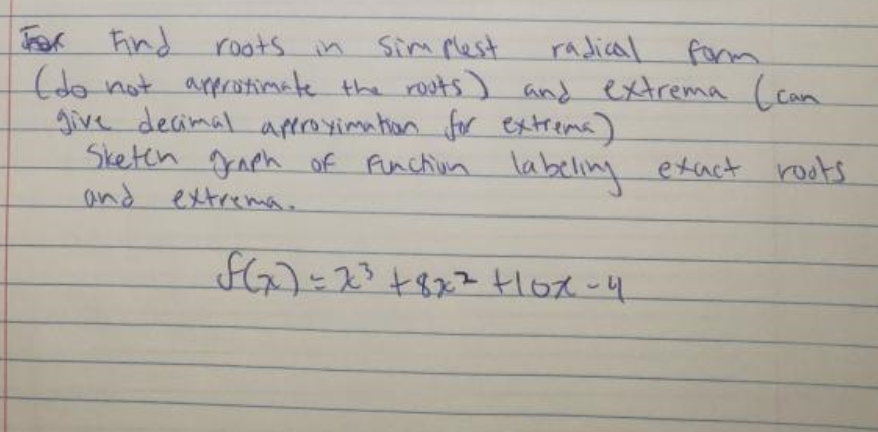 Find roots in simplest radical form
(do not approximate the roots) and extrema (can
give decimal approximation for extrema)
Sketch graph of function labeling exact roots
and extrema.
f(x) = x³ + 8x² + 10x - 4